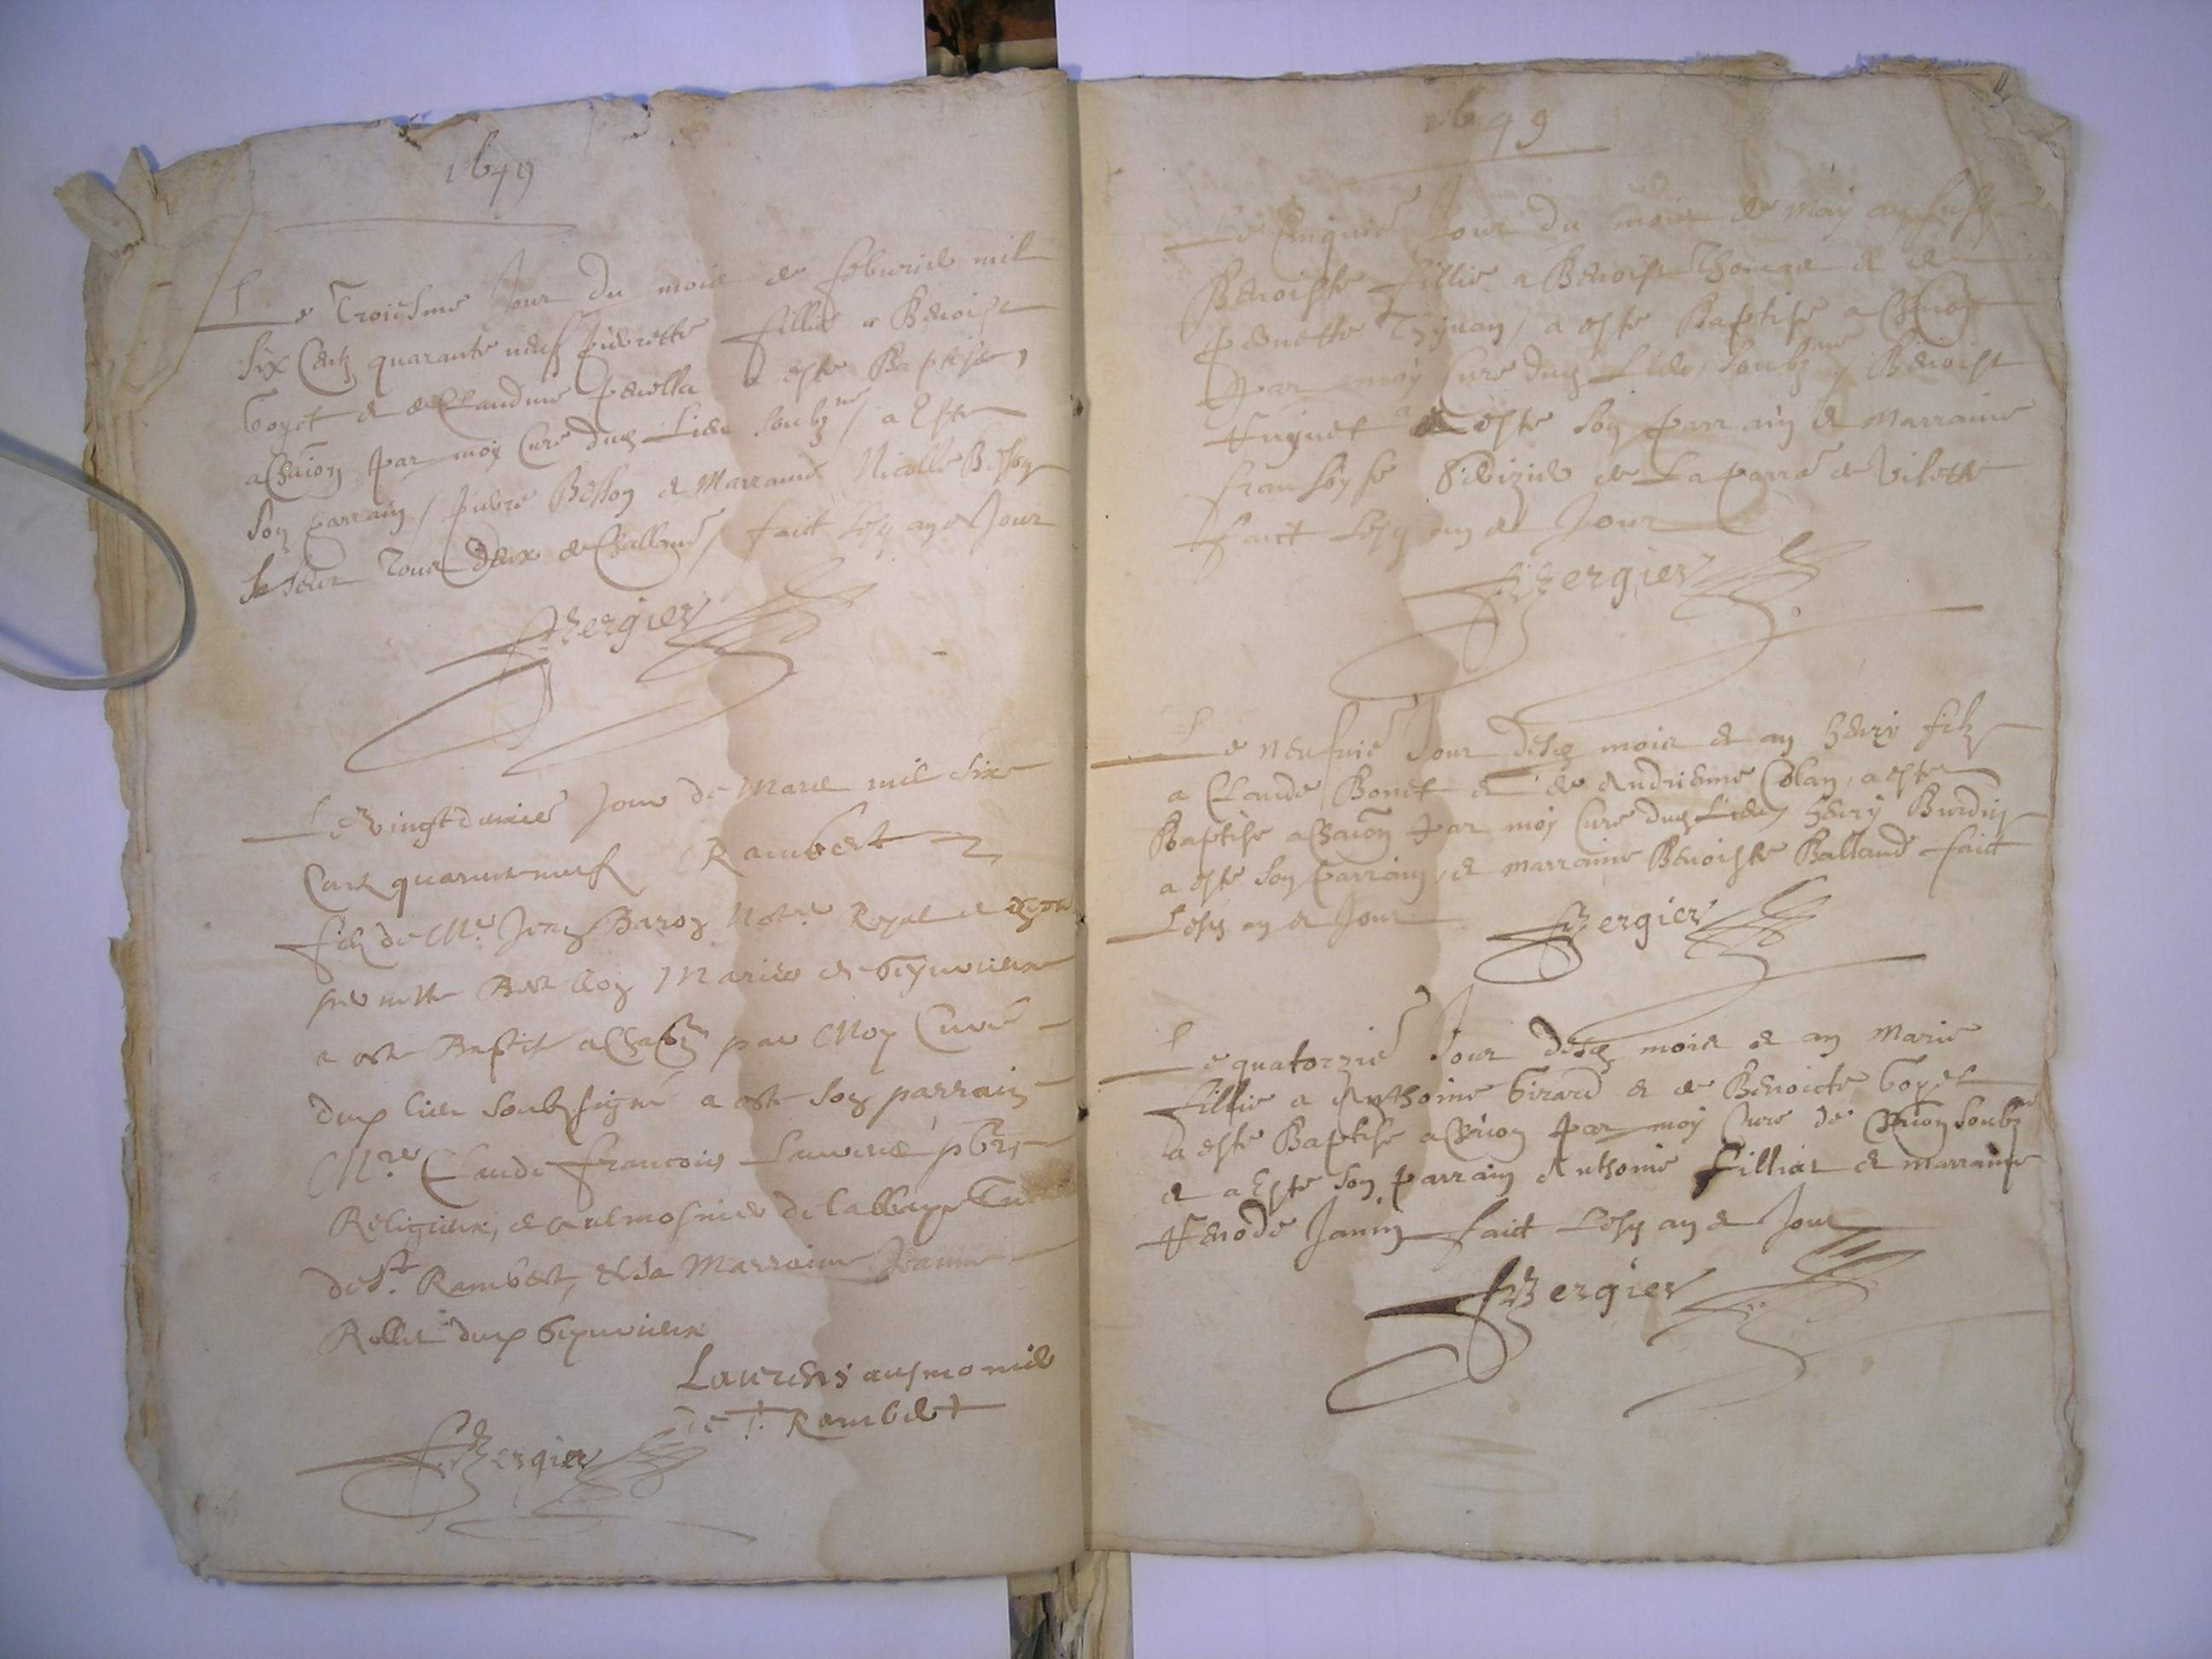 1649
Le Troiesme Jour du mois de feburier mil
Six Centz quarante neuf pierrette fillie a Benoist
Goyet et de Claudine perolla a este Baptise,
a Chaion par moy Cure dud Lieu soubzne / a Este
son parrain / pierre Besson et Marraine Nicolle Besson
sa seur Tous deux de Challand / faict Lesq an et Jour
Bergier
Le vingt deuxie Jour de Mars mil Six
Cens quarante neuf Rambert
filz de Me Jean Baron Notre Royal et
pernette Maries de
a este Baptise a par Moy Cure
dud lieu Soubzsigné a este son parrain
Mre Claude francois Laurens pbre
Religieux, et aulmosnier de labbaye
de St. Rambert, et sa Marraine Jeanne
Rollet dud
Laurens ausmonier
de St. Rambert
Bergier
1649
Le Cinquie Jour du mois de May an susd
Benoiste fillie a Benoist Thomas et de
pernette a este Baptise a
par moy Cure dud Lieu, soubzne / Benoist
Huguet a este son parrain et Marraine
fransoyse de La parre de Vilette
faict Lesq an et Jour
Bergier
Le neufuie Jour desq mois et an henry filz
a Claude Bonet et de Andrienne Colan, a este
Baptise a Chaion par moy Cure dud Lieu / henry Burdin
a este son parrain, et marraine Benoiste Balland faict
Lesq an et Jour Bergier
Le quatorzie Jour desq mois et an Marie
fillie a Anthoine Girard et de Benoicte Goyet
a este Baptise a Chaion par moy Cure de Chaion soubzne
et a Este son parrain Anthoine Filliat et marraine
Janin faict Lesq an et Jour
Bergier